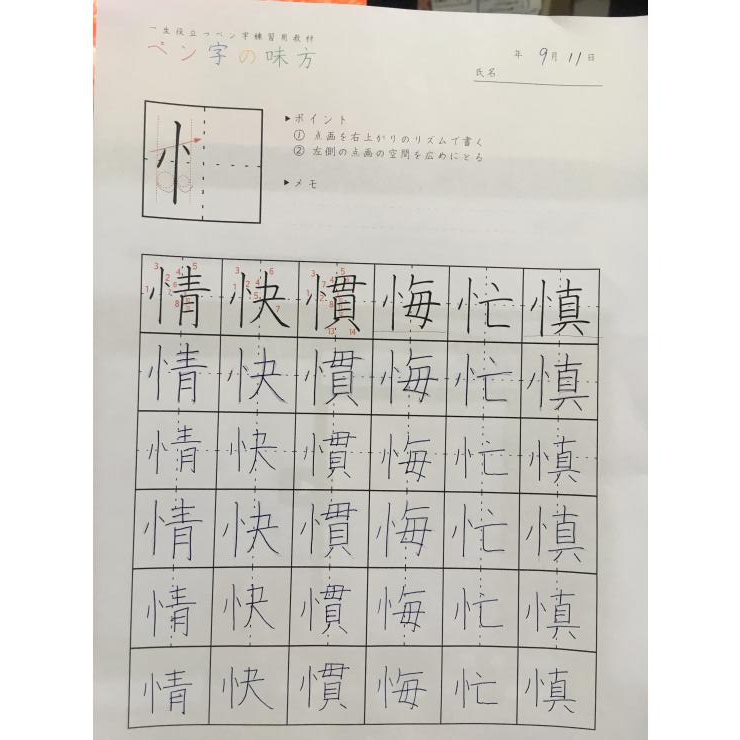 一生役立つペン字練習用教材
ペン字の味方
年 9月 11日
氏名
忄
▶ポイント
① 点画を右上がりのリズムで書く
② 左側の点画の空間を広めにとる
▶メモ
情 快 慣 悔 忙 慎
情 快 慣 悔 忙 慎
情 快 慣 悔 忙 慎
情 快 慣 悔 忙 慎
情 快 慣 悔 忙 慎
情 快 慣 悔 忙 慎